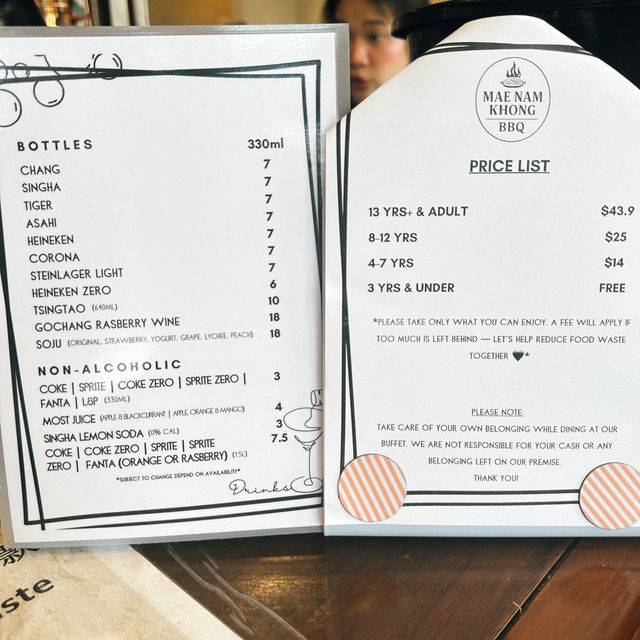 BOTTLES 330ml
CHANG 7
SINGHA 7
TIGER 7
ASAHI 7
HEINEKEN 7
CORONA 7
STEINLAGER LIGHT 7
HEINEKEN ZERO 6
TSINGTAO (640ML) 10
GOCHANG RASBERRY WINE 18
SOJU (ORIGINAL, STRAWBERRY, YOGURT, GRAPE, LYCHEE, PEACH) 18
NON-ALCOHOLIC
COKE | SPRITE | COKE ZERO | SPRITE ZERO | 3
FANTA | L&P (330ML)
MOST JUICE (APPLE & BLACKCURRANT | APPLE, ORANGE & MANGO) 4
SINGHA LEMON SODA (0% CAL) 3
COKE | COKE ZERO | SPRITE | SPRITE 7.5
ZERO | FANTA (ORANGE OR RASBERRY) (1.5L)
*SUBJECT TO CHANGE DEPEND ON AVAILABILITY*
Drinks
MAE NAM
KHONG
BBQ
PRICE LIST
13 YRS+ & ADULT $43.9
8-12 YRS $25
4-7 YRS $14
3 YRS & UNDER FREE
*PLEASE TAKE ONLY WHAT YOU CAN ENJOY. A FEE WILL APPLY IF
TOO MUCH IS LEFT BEHIND — LET'S HELP REDUCE FOOD WASTE
TOGETHER 🖤*
PLEASE NOTE:
TAKE CARE OF YOUR OWN BELONGING WHILE DINING AT OUR
BUFFET. WE ARE NOT RESPONSIBLE FOR YOUR CASH OR ANY
BELONGING LEFT ON OUR PREMISE.
THANK YOU!